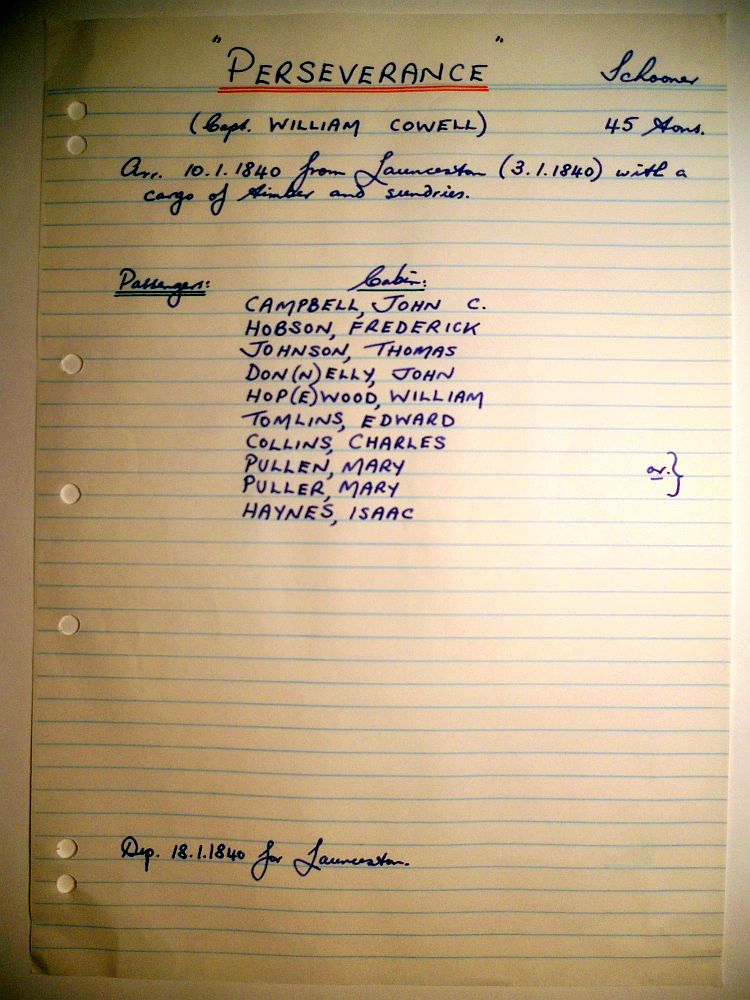 "PERSEVERANCE" Schooner
(Capt. WILLIAM COWELL) 45 tons.
Arr. 10.1.1840 from Launceston (3.1.1840) with a
cargo of timber and sundries.
Passengers: Cabin:
CAMPBELL, JOHN C.
HOBSON, FREDERICK
JOHNSON, THOMAS
DON(N)ELLY, JOHN
HOP(E)WOOD, WILLIAM
TOMLINS, EDWARD
COLLINS, CHARLES
PULLEN, MARY
or.}
PULLER, MARY
HAYNES, ISAAC
Dep. 18.1.1840 for Launceston.